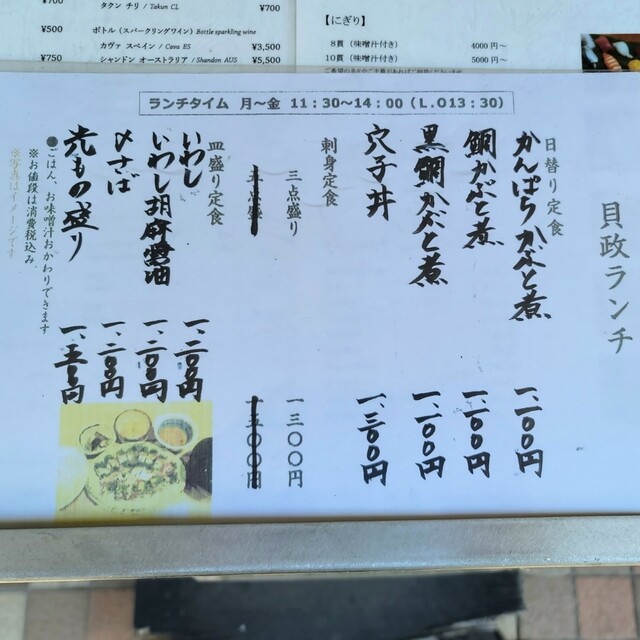 タクン チリ / Takun CL
¥700
¥500
ボトル (スパークリングワイン) Bottle sparkling wine
カヴァ スペイン / Cava ES
¥3,500
¥750
シャンドン オーストラリア / Shandon AUS
¥5,500
¥700
【にぎり】
8貫 (味噌汁付き) 4000円～
10貫 (味噌汁付き) 5000円～
ランチタイム 月～金 11：30～14：00 (L.O13：30)
貝政ランチ
日替り定食
かんぱちかぶと煮 一、一〇〇円
鯛かぶと煮 一、一〇〇円
黒鯛かぶと煮 一、一〇〇円
穴子丼 一、三〇〇円
刺身定食
三点盛り 一三〇〇円
五点盛り 一五〇〇円
皿盛り定食
いわし 一、二〇〇円
いわし胡麻醤油 一、二〇〇円
〆さば 一、二〇〇円
光もの盛り 一、五〇〇円
●ごはん、お味噌汁おかわりできます
※お値段は消費税込み
※写真はイメージです